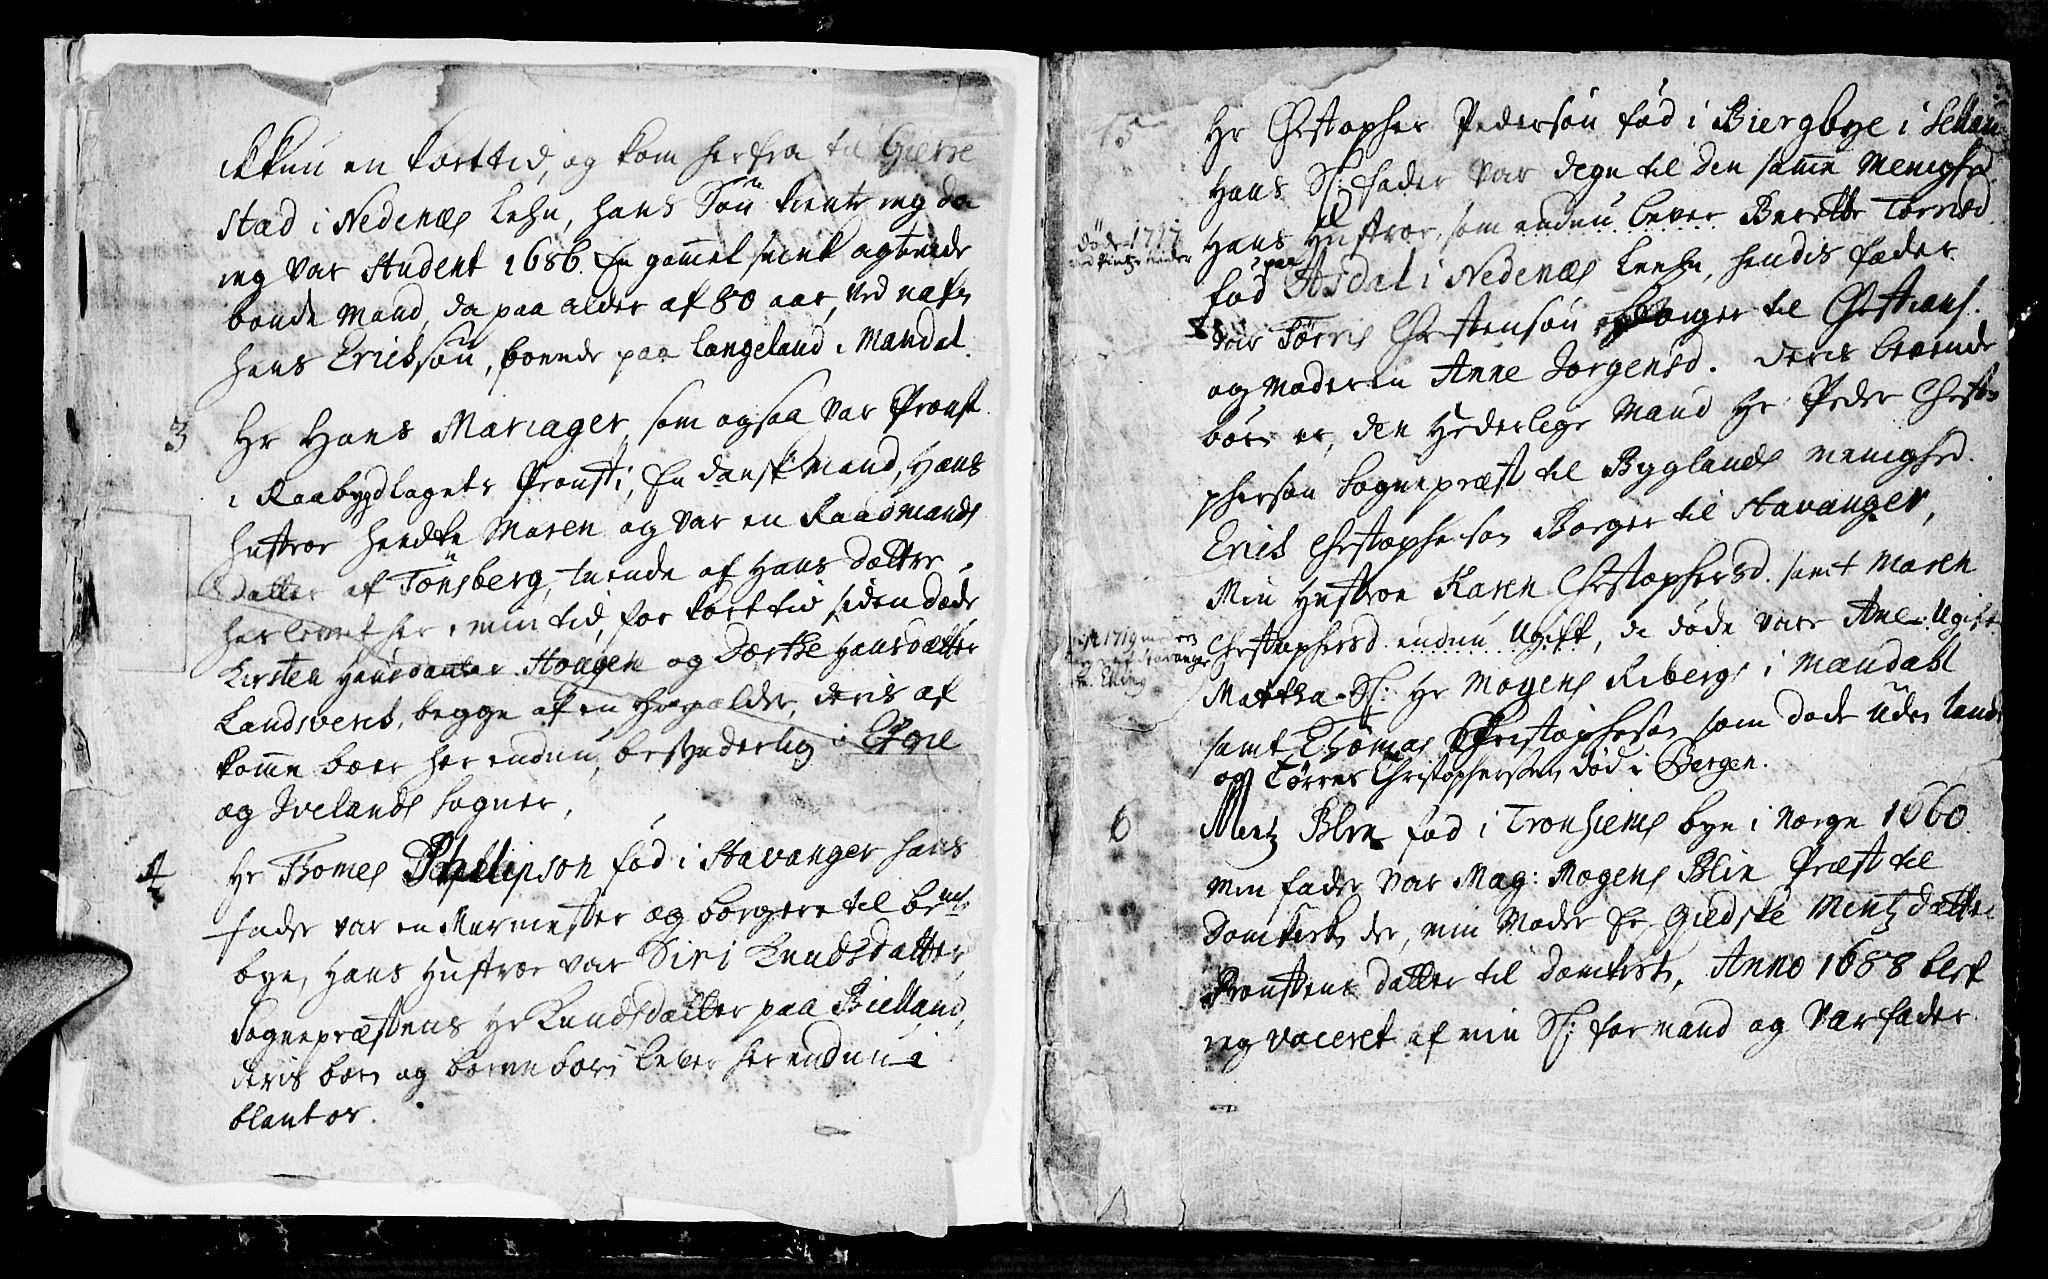 ikkun en kort tid, og kom herfra til Gierre
stad i Nedenæs Lehn, hans Søn kiente ieg da
ieg var Student 1686. En gammel smuk agtende
bonde Mand, da paa alder af 80 aar, ved nafn
Hans Erichsøn, boende paa Langeland i Mandal.
3 Hr Hans Mariager, som ogsaa var Pronst
i Raabygdlagets Pronsti, En dansk Mand, Hans
hustroe hendte Maren og var en Raadmands
datter af Tønsberg, tuende af Hans døttre
har levet her i min tid, for kort tid siden døde
Kirsten Hansdatter Hougen og Dorthe Hansdatter
Landsverk, begge af en Høy alder, deris af
komme boer her endnu, besynderlig i Egie
og Ivelands Sogner.
4 Hr Thomes Phillipson fød i Stavanger hans
fader var en Murmester og borgere til bemte
bye, Hans Hustroe var Siri Knudsdatter,
Sognepræstens Hr Knuds datter paa Bielland,
deris børn og børnebørn lever her endnu i
blant os.
5 Hr Chrstopher Pedersøn fød i Biergbye i Sellan
Hans Sl: fader var degn til den samme Menighed
Hans Hustroe, som endnu lever Berette Torrisd.
døde 1717
fød paa Asdal i Nedenæs Leehn, hendis fader
var Tørris Chrstensøn Borger til Chrstians.
og Moderen Anne Jorgensd. Deris levende
børn er, den Hæderlige Mand Hr Peder Chrsto
phersøn Sognepræst til Byglands Menighed.
Erich Chrstophersøn Borger til Stavanger,
Min Hustroe Karen Chrstophersd. samt Maren
Chrstophersd. endnu Ugift, de døde vare Ane Ugift
1719
Martha Sl: Hr Mogens Ribergs i Mandahl
samt Thomas Christophersøn som døde Uden lands
og Tørres Christophersen død i Bergen.
6 Mentz Blix fød i Tronhiems bye i Norge 1660.
Min fader var Mag: Mogens Blix Præst til
Domkirken der, min Moder er Giedske Mentzdatter
Pronstens datter til Domkirk, Anno 1688 blef
ieg voceret af min Sl: formand og Værfader